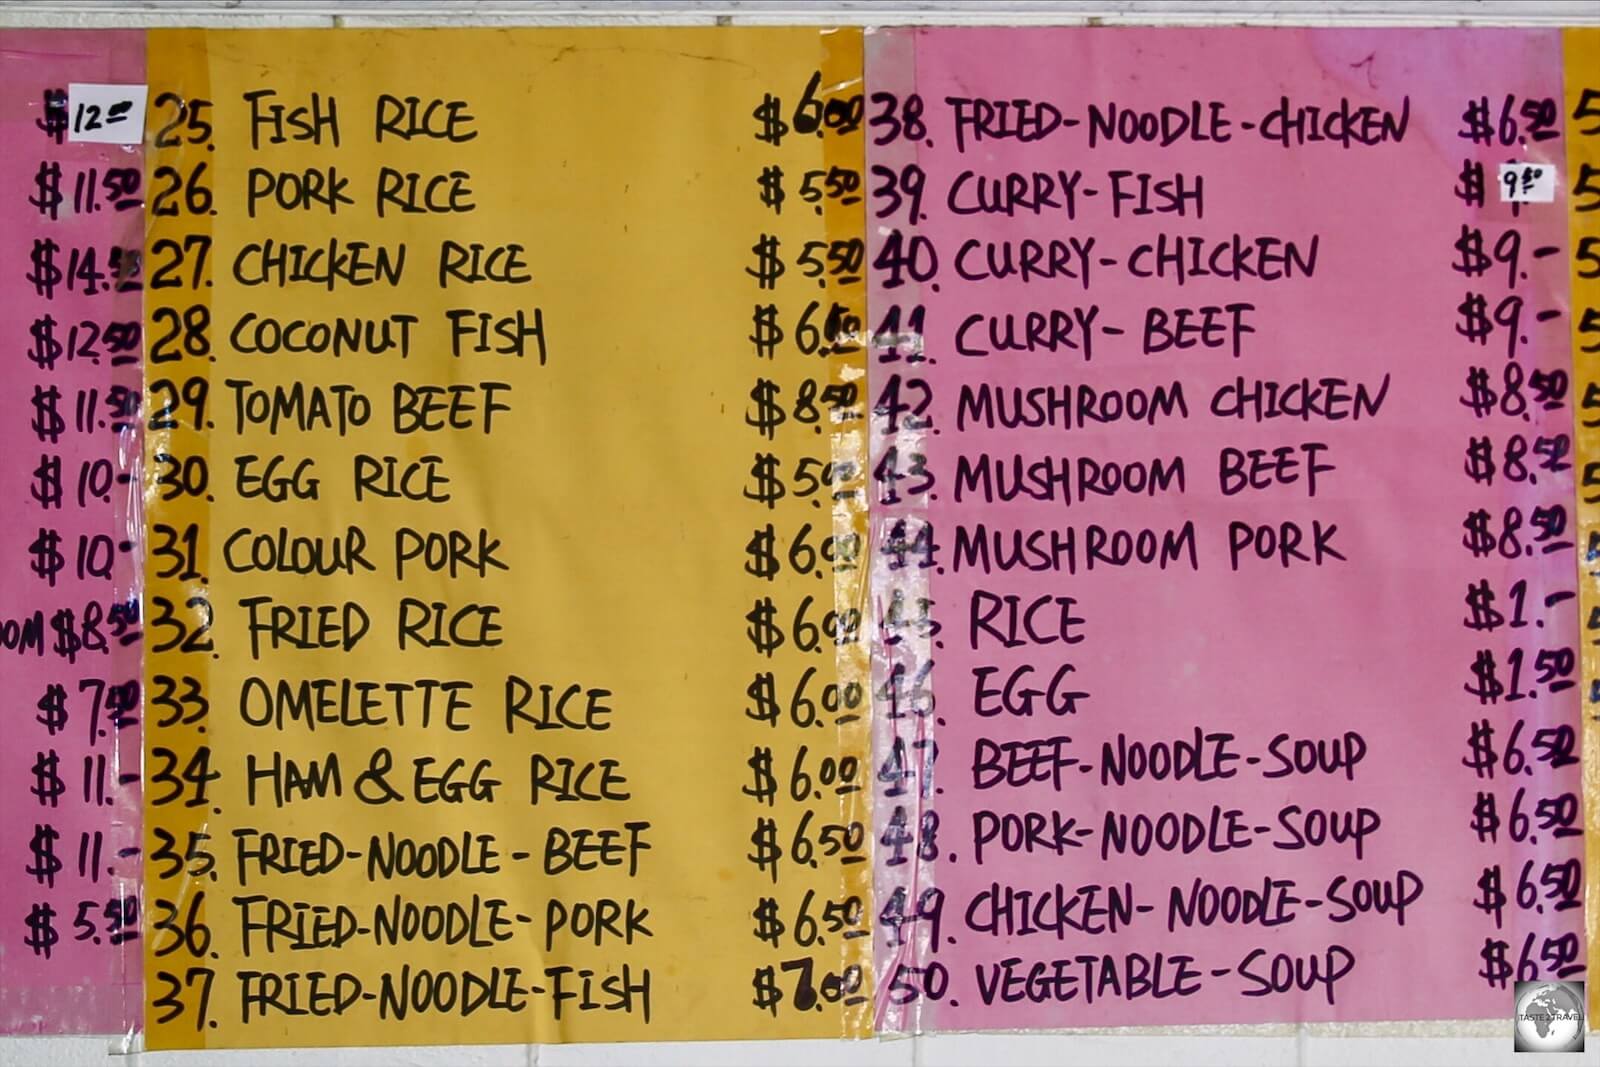 $12.00
$11.50
$14.50
$12.50
$11.50
$10.-
$10.-
OM $8.50
$7.50
$11.-
$11.-
$5.50
25. FISH RICE $6.00
26. PORK RICE $5.50
27. CHICKEN RICE $5.50
28. COCONUT FISH
29. TOMATO BEEF $8.50
30. EGG RICE $5.00
31. COLOUR PORK $6.00
32. FRIED RICE $6.00
33. OMELETTE RICE $6.00
34. HAM & EGG RICE $6.00
35. FRIED-NOODLE-BEEF $6.50
36. FRIED-NOODLE-PORK $6.50
37. FRIED-NOODLE-FISH $7.00
38. FRIED-NOODLE-CHICKEN $6.50
39. CURRY-FISH $9.50
40. CURRY-CHICKEN $9.-
41. CURRY-BEEF $9.-
42. MUSHROOM CHICKEN $8.50
43. MUSHROOM BEEF $8.50
44. MUSHROOM PORK $8.50
45. RICE $1.-
46. EGG $1.50
47. BEEF-NOODLE-SOUP $6.50
48. PORK-NOODLE-SOUP $6.50
49. CHICKEN-NOODLE-SOUP $6.50
50. VEGETABLE-SOUP $6.50
TASTE2TRAVEL